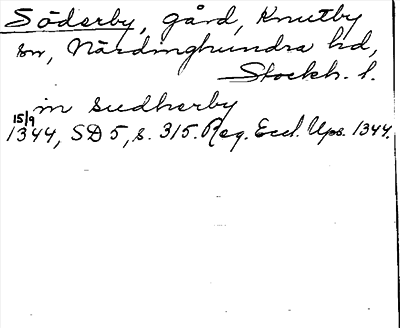 Söderby, gård, Knutby
sn, Närdinghundra hd,
Stockh. l.
in sudherby
15/9
1344, SD 5, s. 315. Reg. Eccl. Ups. 1344.